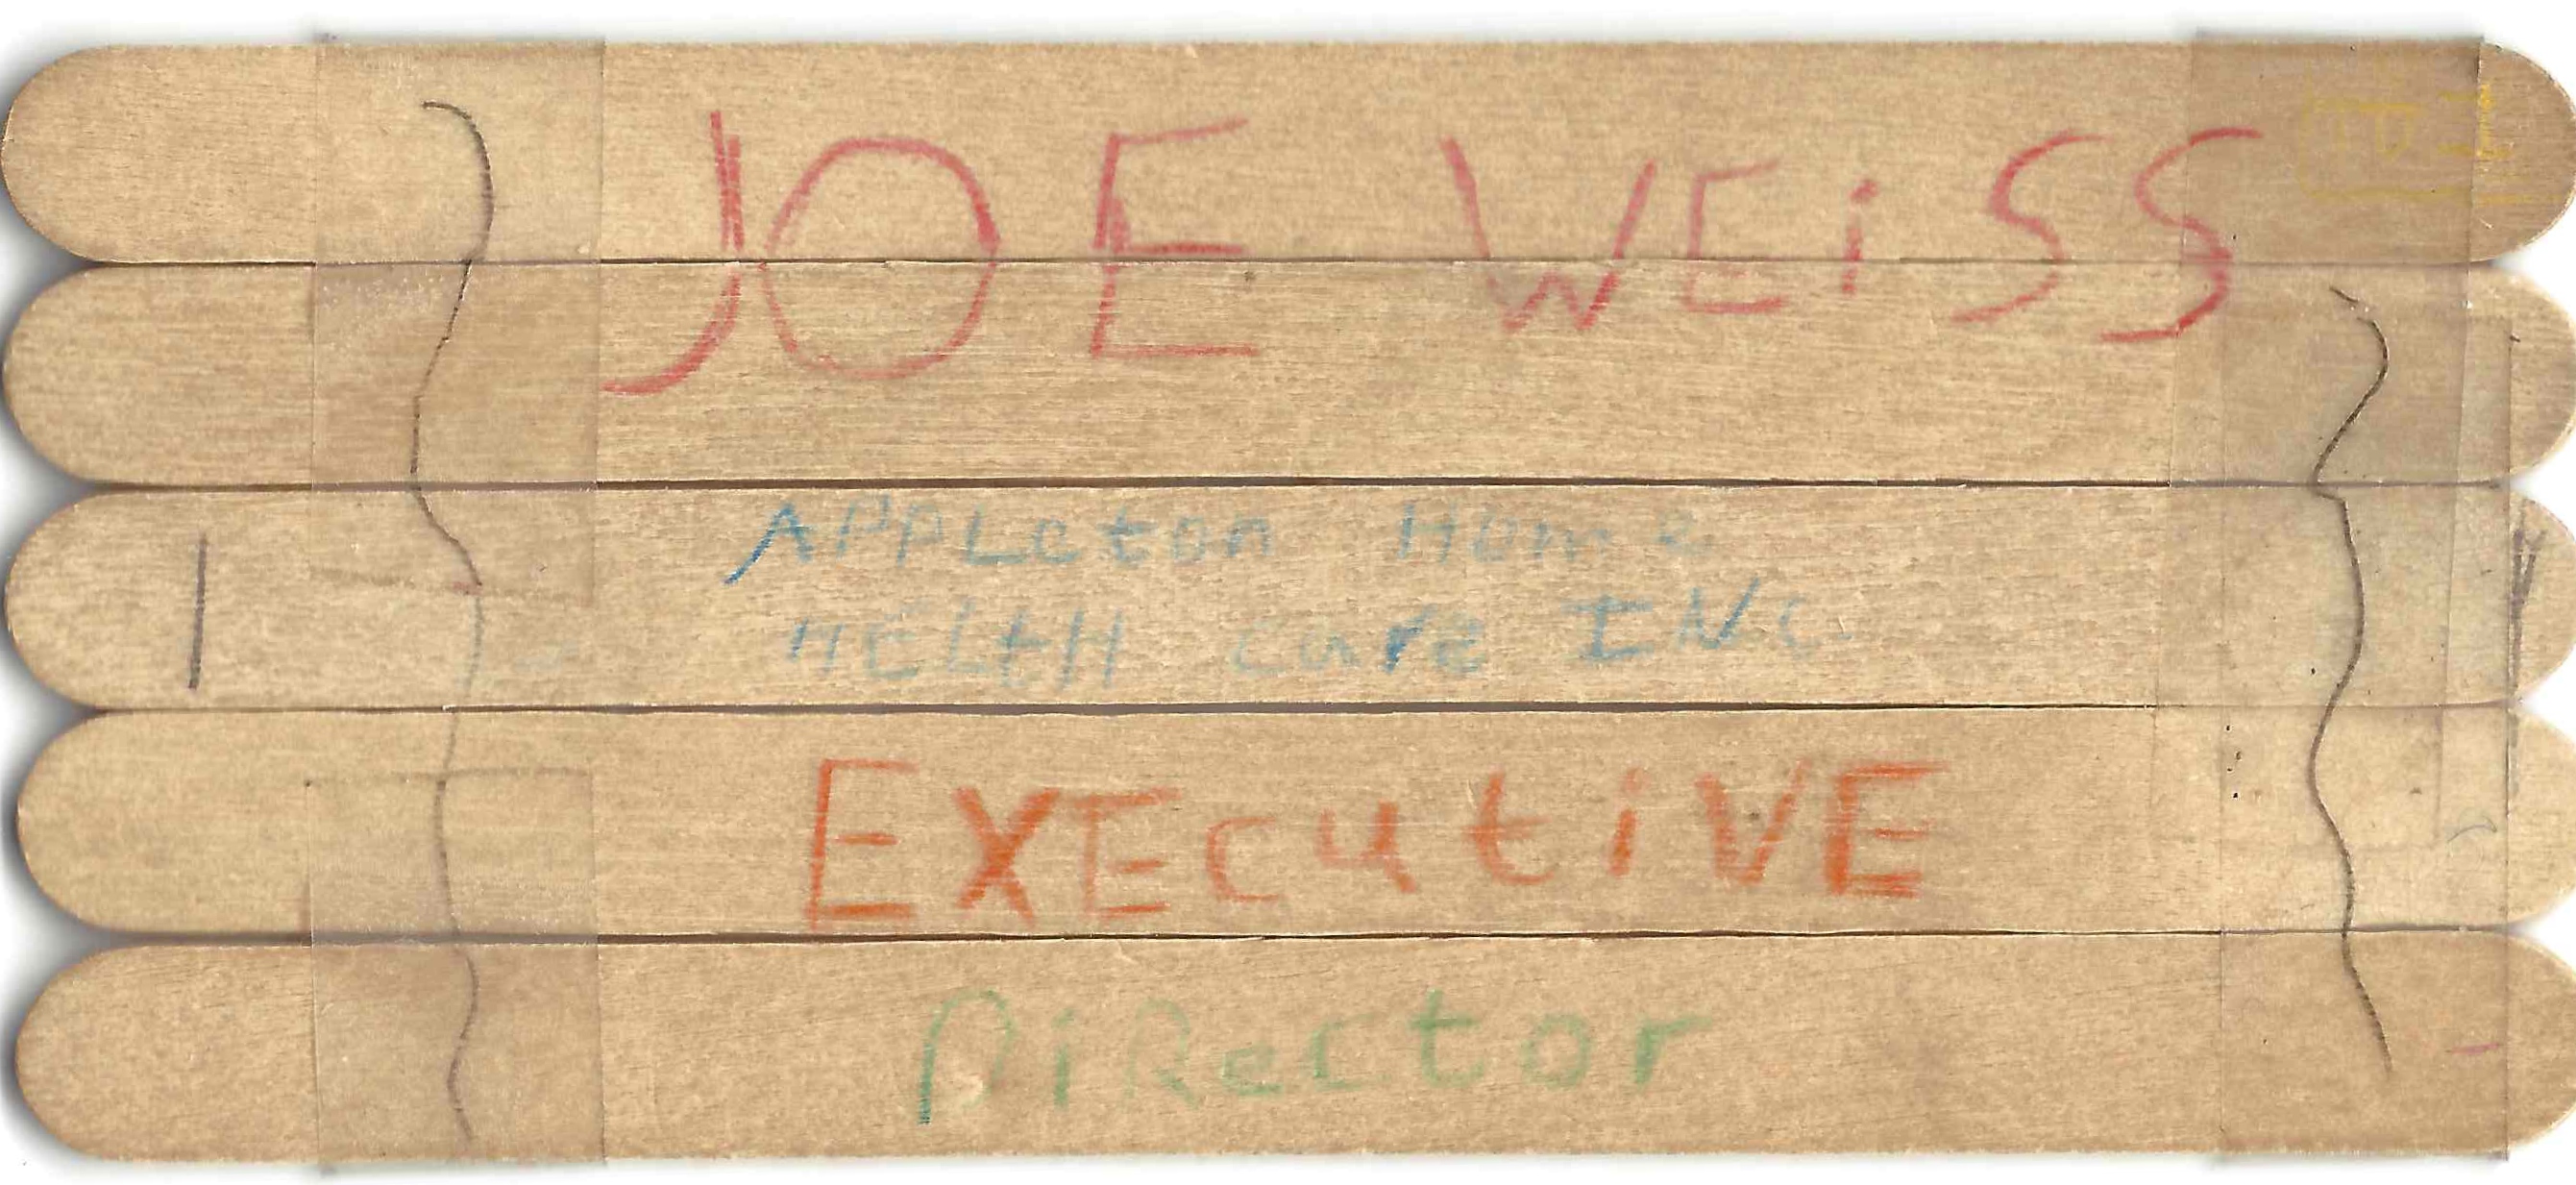 JOE WEiSS
APPLeton Home
HELtH care INC
EXEcutiVE
DiRector